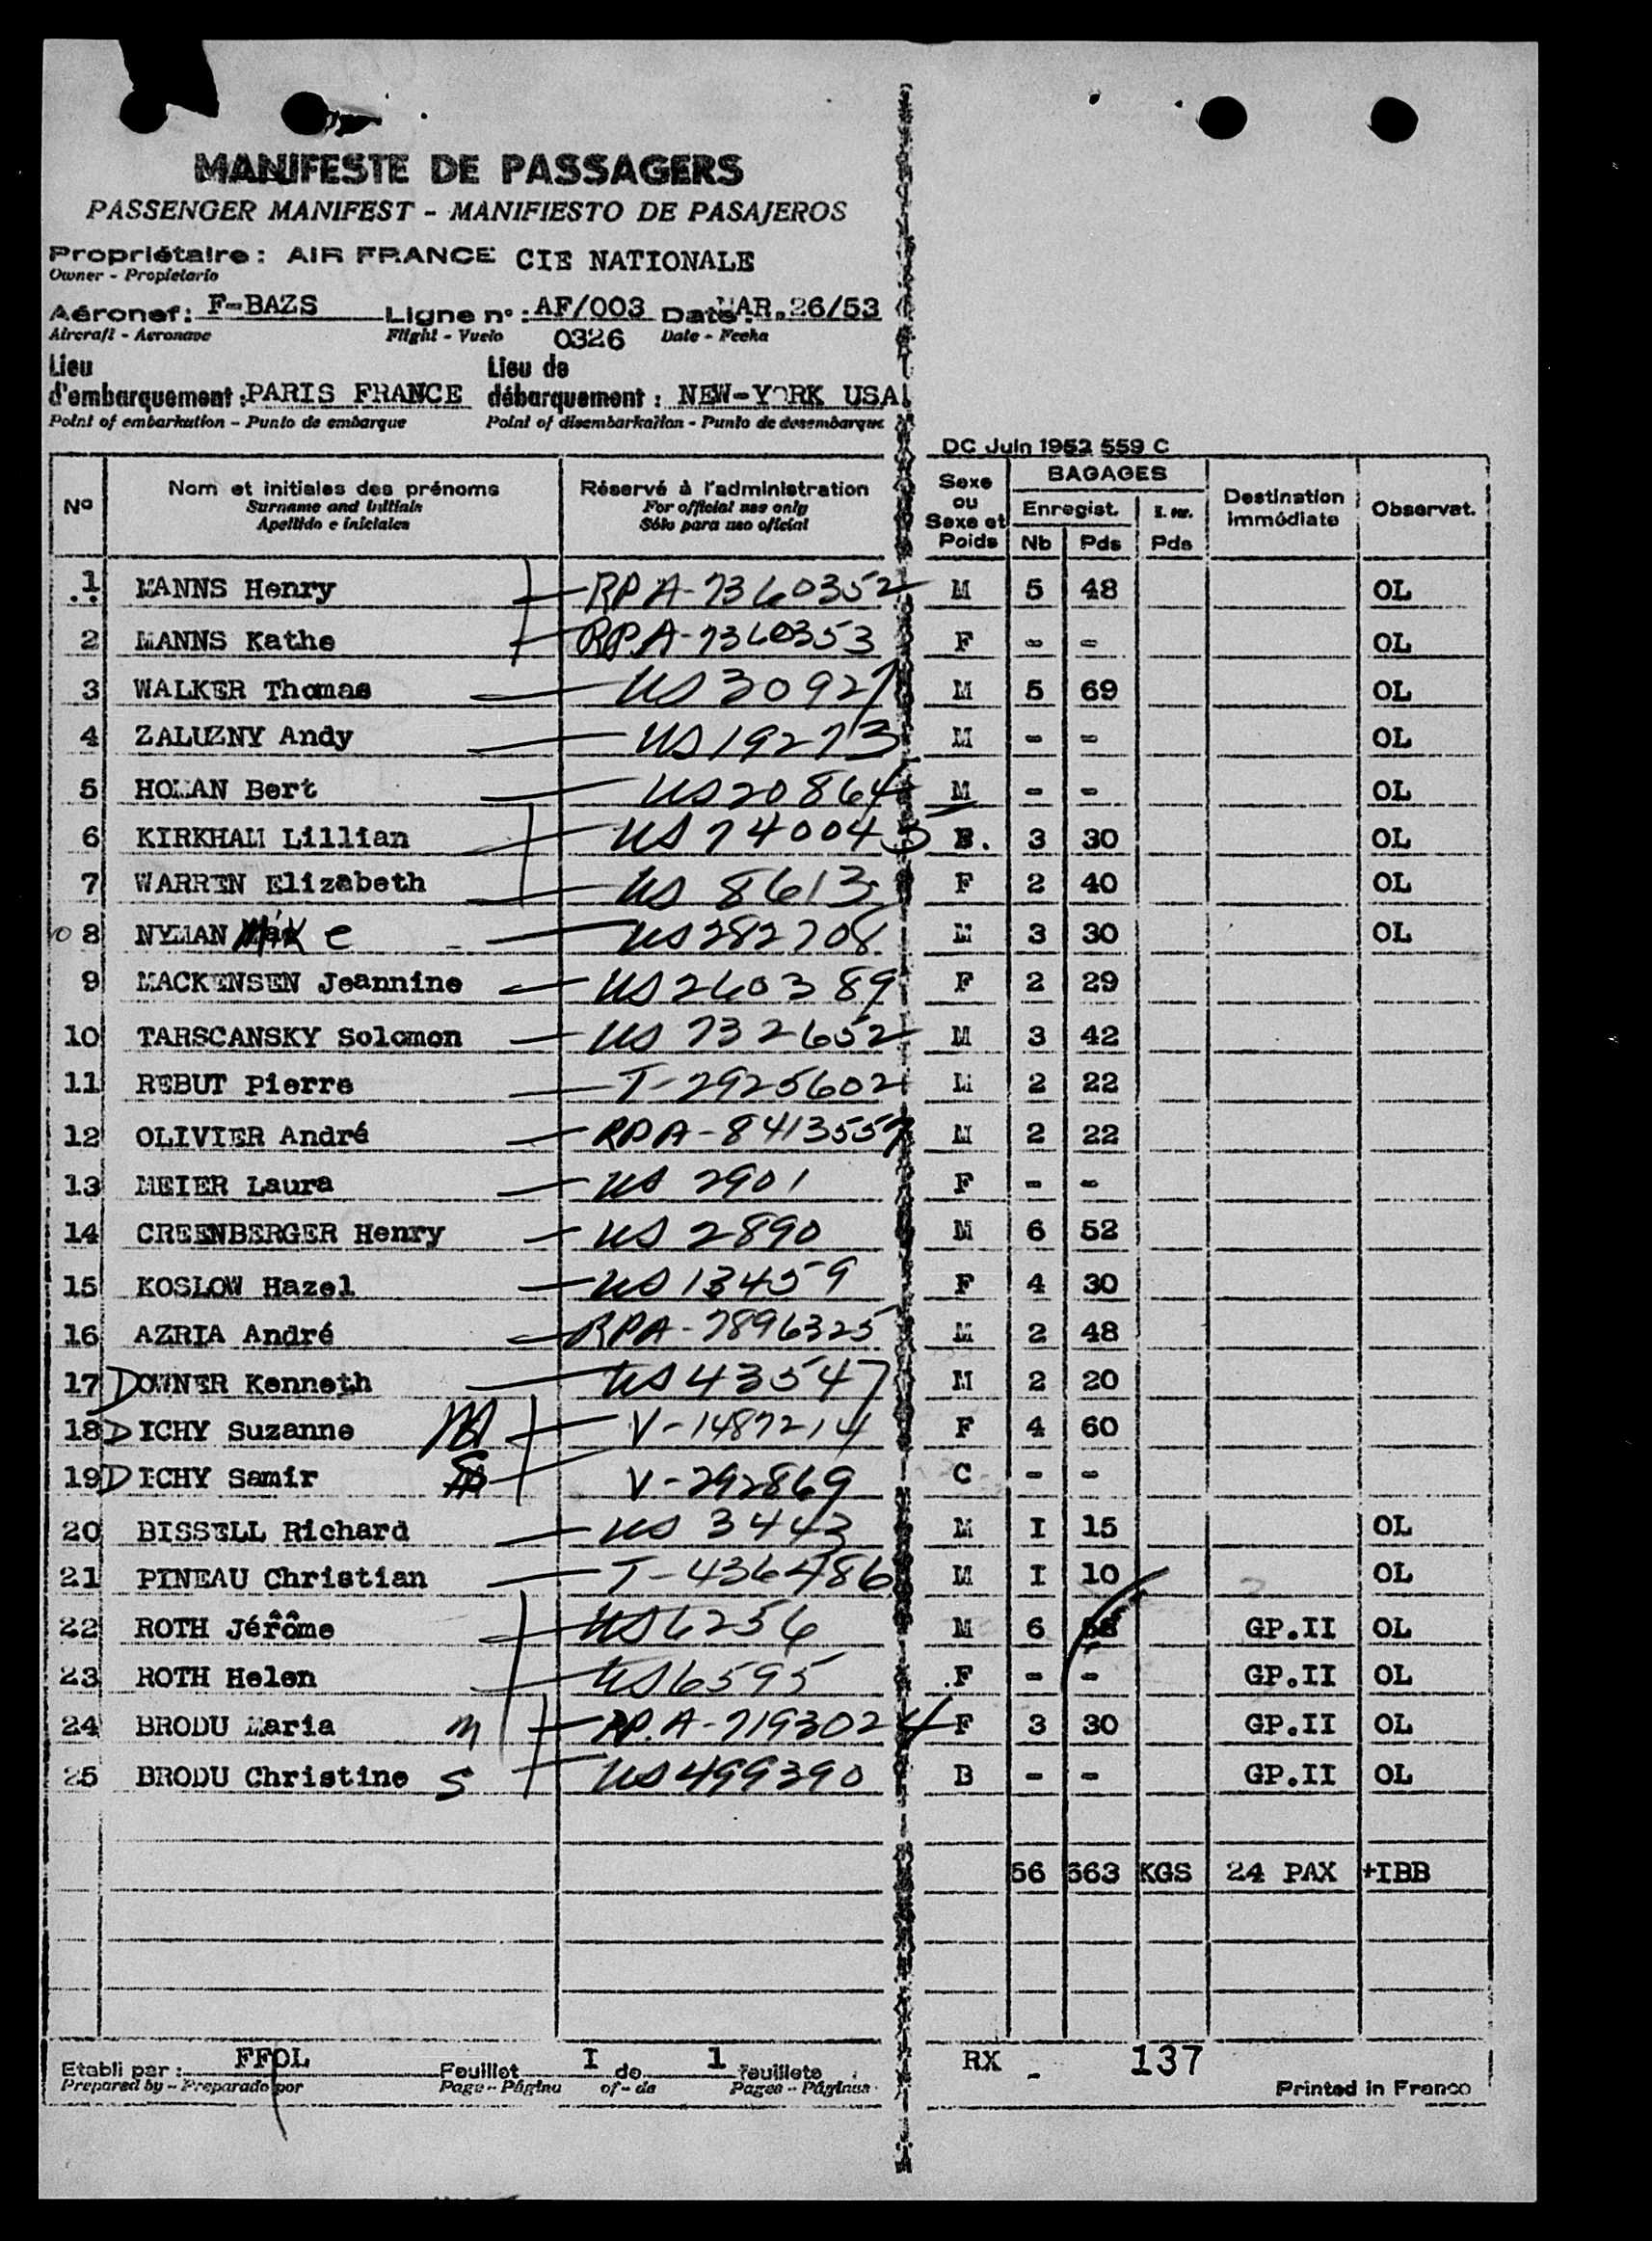 MANIFESTE DE PASSAGERS
PASSENGER MANIFEST - MANIFIESTO DE PASAJEROS
Propriétaire : AIR FRANCE CIE NATIONALE
Owner - Propietario
Aéronef : F-BAZS Ligne n° : AF/003 Date MAR.26/53
Aircraft - Aeronave Flight - Vuelo 0326 Date - Fecha
Lieu d'embarquement : PARIS FRANCE Lieu de débarquement : NEW-YORK USA
Point of embarkation - Punto de embarque Point of disembarkation - Punto de desembarque
DC Juin 1952 559 C
N° Nom et initiales des prénoms Réservé à l'administration Sexe ou Sexe et Poids BAGAGES Enregist. Nb Pds Pds Destination immédiate Observat.
Surname and initials For official use only
Apellido e iniciales Sólo para uso oficial
1 MANNS Henry RPA-7360352 M 5 48 OL
2 MANNS Kathe RPA-7360353 F - - OL
3 WALKER Thomas US 30927 M 5 69 OL
4 ZALUZNY Andy US 19273 M - - OL
5 HOMAN Bert US 20864 M - - OL
6 KIRKHAM Lillian US 740043 3 30 OL
7 WARREN Elizabeth US 8613 F 2 40 OL
8 NYMAN e US 282708 M 3 30 OL
9 MACKENSEN Jeannine US 260389 F 2 29
10 TARSCANSKY Solomon US 732652 M 3 42
11 REBUT Pierre T-2925602 M 2 22
12 OLIVIER André RPA-8413557 M 2 22
13 MEIER Laura US 2901 F - -
14 CREENBERGER Henry US 2890 M 6 52
15 KOSLOW Hazel US 13459 F 4 30
16 AZRIA André RPA-7896325 M 2 48
17 DOWNER Kenneth US 43547 M 2 20
18 DICHY Suzanne M V-1487214 F 4 60
19 DICHY Samir S V-292869 C - -
20 BISSELL Richard US 3443 M I 15 OL
21 PINEAU Christian T-436486 M I 10 OL
22 ROTH Jérôme US 6256 M 6 GP.II OL
23 ROTH Helen US 6595 F - - GP.II OL
24 BRODU Maria M RP.A-7193024 F 3 30 GP.II OL
25 BRODU Christine S US 499390 B - - GP.II OL
56 663 KGS 24 PAX +IBB
Etabli par : FFOL Feuillet I de 1 feuillets RX - 137
Prepared by - Preparado por Page - Página of - de Pages - Páginas
Printed in France